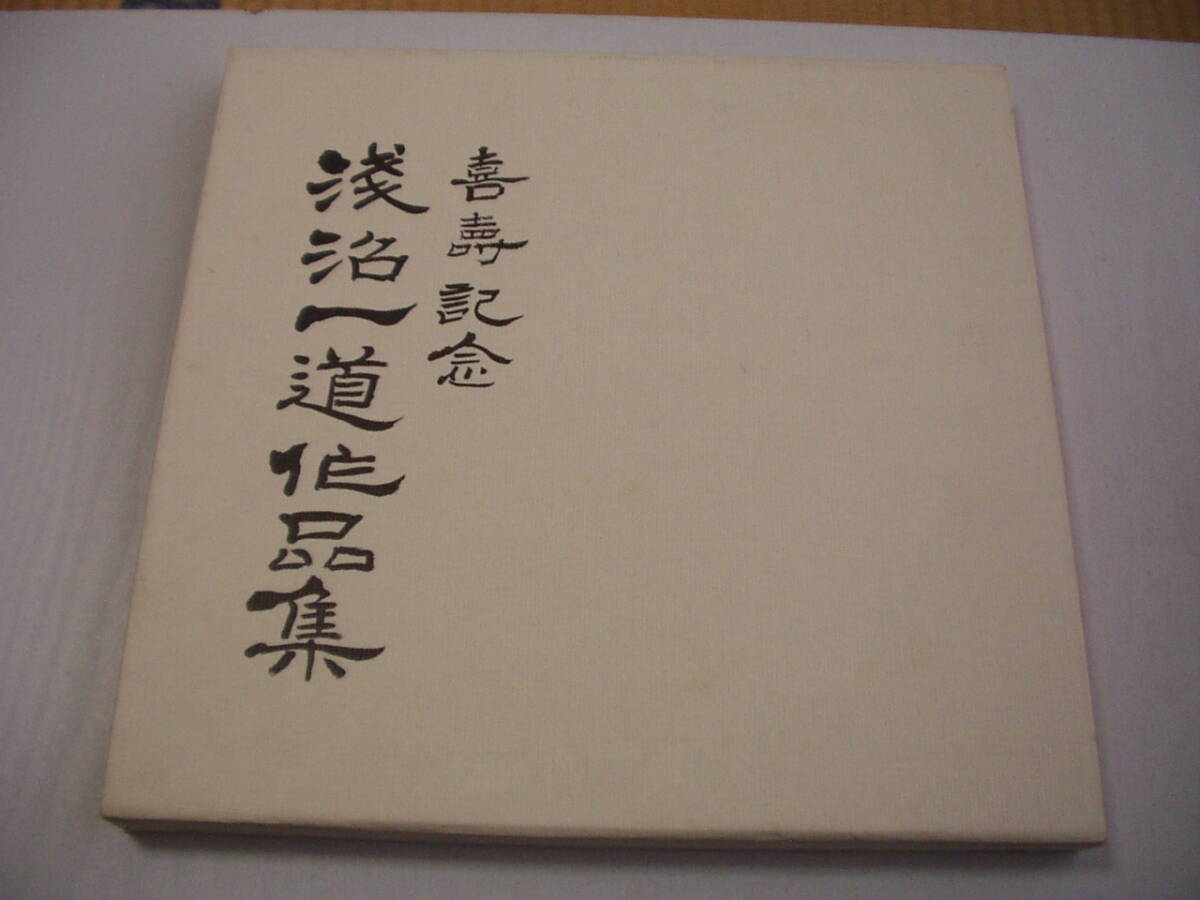 喜壽記念
淺沼一道作品集